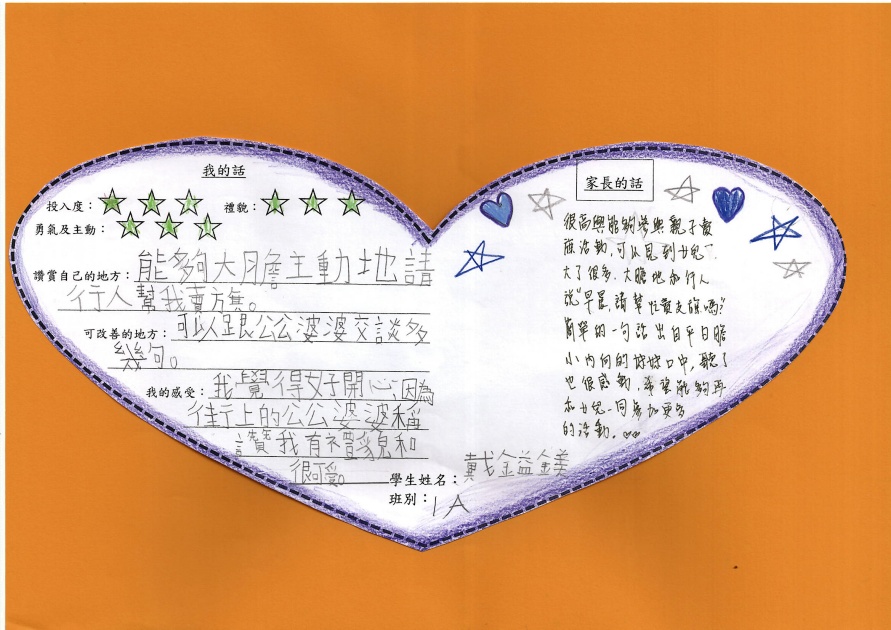 我的話
投入度：
禮貌：
勇氣及主動：
讚賞自己的地方：能夠大膽主動地請
行人幫我賣方旗。
可改善的地方：可以跟公公婆婆交談多
幾句。
我的感受：我覺得好開心，因為
街上的公公婆婆稱
讚我有禮貌和
很可愛。
學生姓名：戴鎰鎂
班別：1A
家長的話
很高興能夠參與親子賣
旗活動，可以見到女兒
大了很多，大膽地和行人
說"早晨，請幫忙賣支旗嗎?"
簡單的一句話出自平日膽
小內向的妹妹口中，聽了
也很感動，希望能夠再
和女兒一同參加更多
的活動。